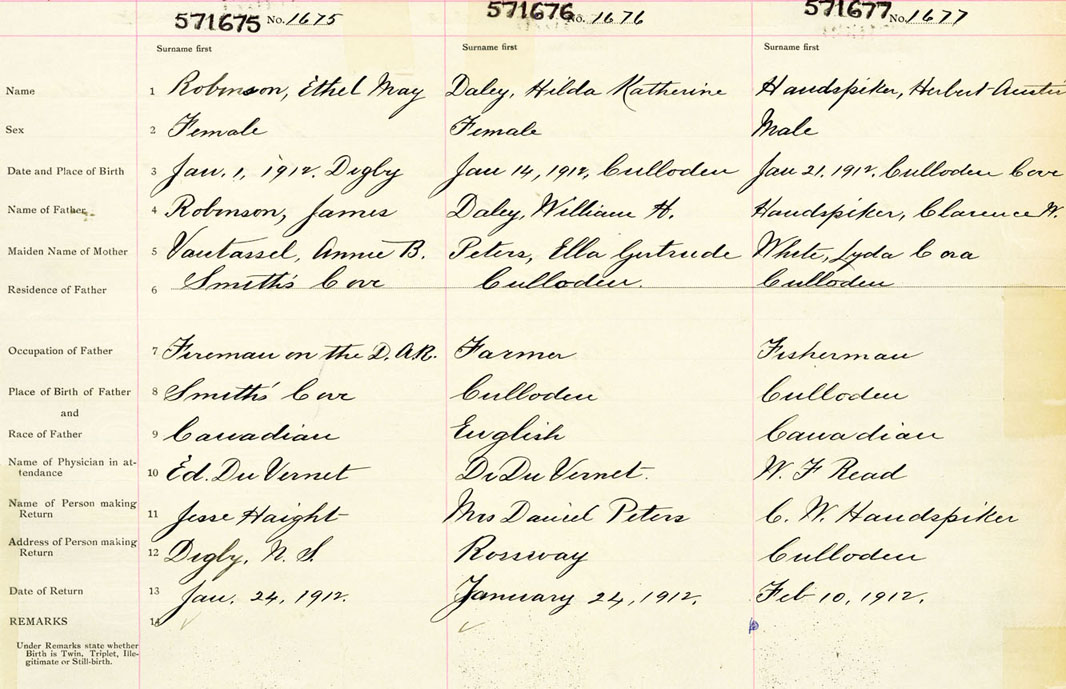 571675 No. 1675 571676 No. 1676 571677 No. 1677
Surname first Surname first Surname first
Name 1 Robinson, Ethel May Daley, Hilda Katherine Handspiker, Herbert Austin
Sex 2 Female Female Male
Date and Place of Birth 3 Jan. 1, 1912. Digby Jan 14, 1912, Culloden Jan 21, 1912. Culloden Cove
Name of Father 4 Robinson, James Daley, William H. Handspiker, Clarence W.
Maiden Name of Mother 5 Vantassel, Annie B. Peters, Ella Gertrude White, Lyda Cora
Residence of Father 6 Smith's Cove Culloden. Culloden
Occupation of Father 7 Fireman on the D.A.R. Farmer Fisherman
Place of Birth of Father 8 Smith's Cove Culloden Culloden
and
Race of Father 9 Canadian English Canadian
Name of Physician in at-
tendance 10 Ed. Du Vernet Dr Du Vernet. W. F Read
Name of Person making
Return 11 Jesse Haight Mrs Daniel Peters C. W. Handspiker
Address of Person making
Return 12 Digby, N. S. Rossway Culloden
Date of Return 13 Jan. 24, 1912. January 24, 1912. Feb 10, 1912.
REMARKS 14
Under Remarks state whether
Birth is Twin. Triplet, Ille-
gitimate or Still-birth.